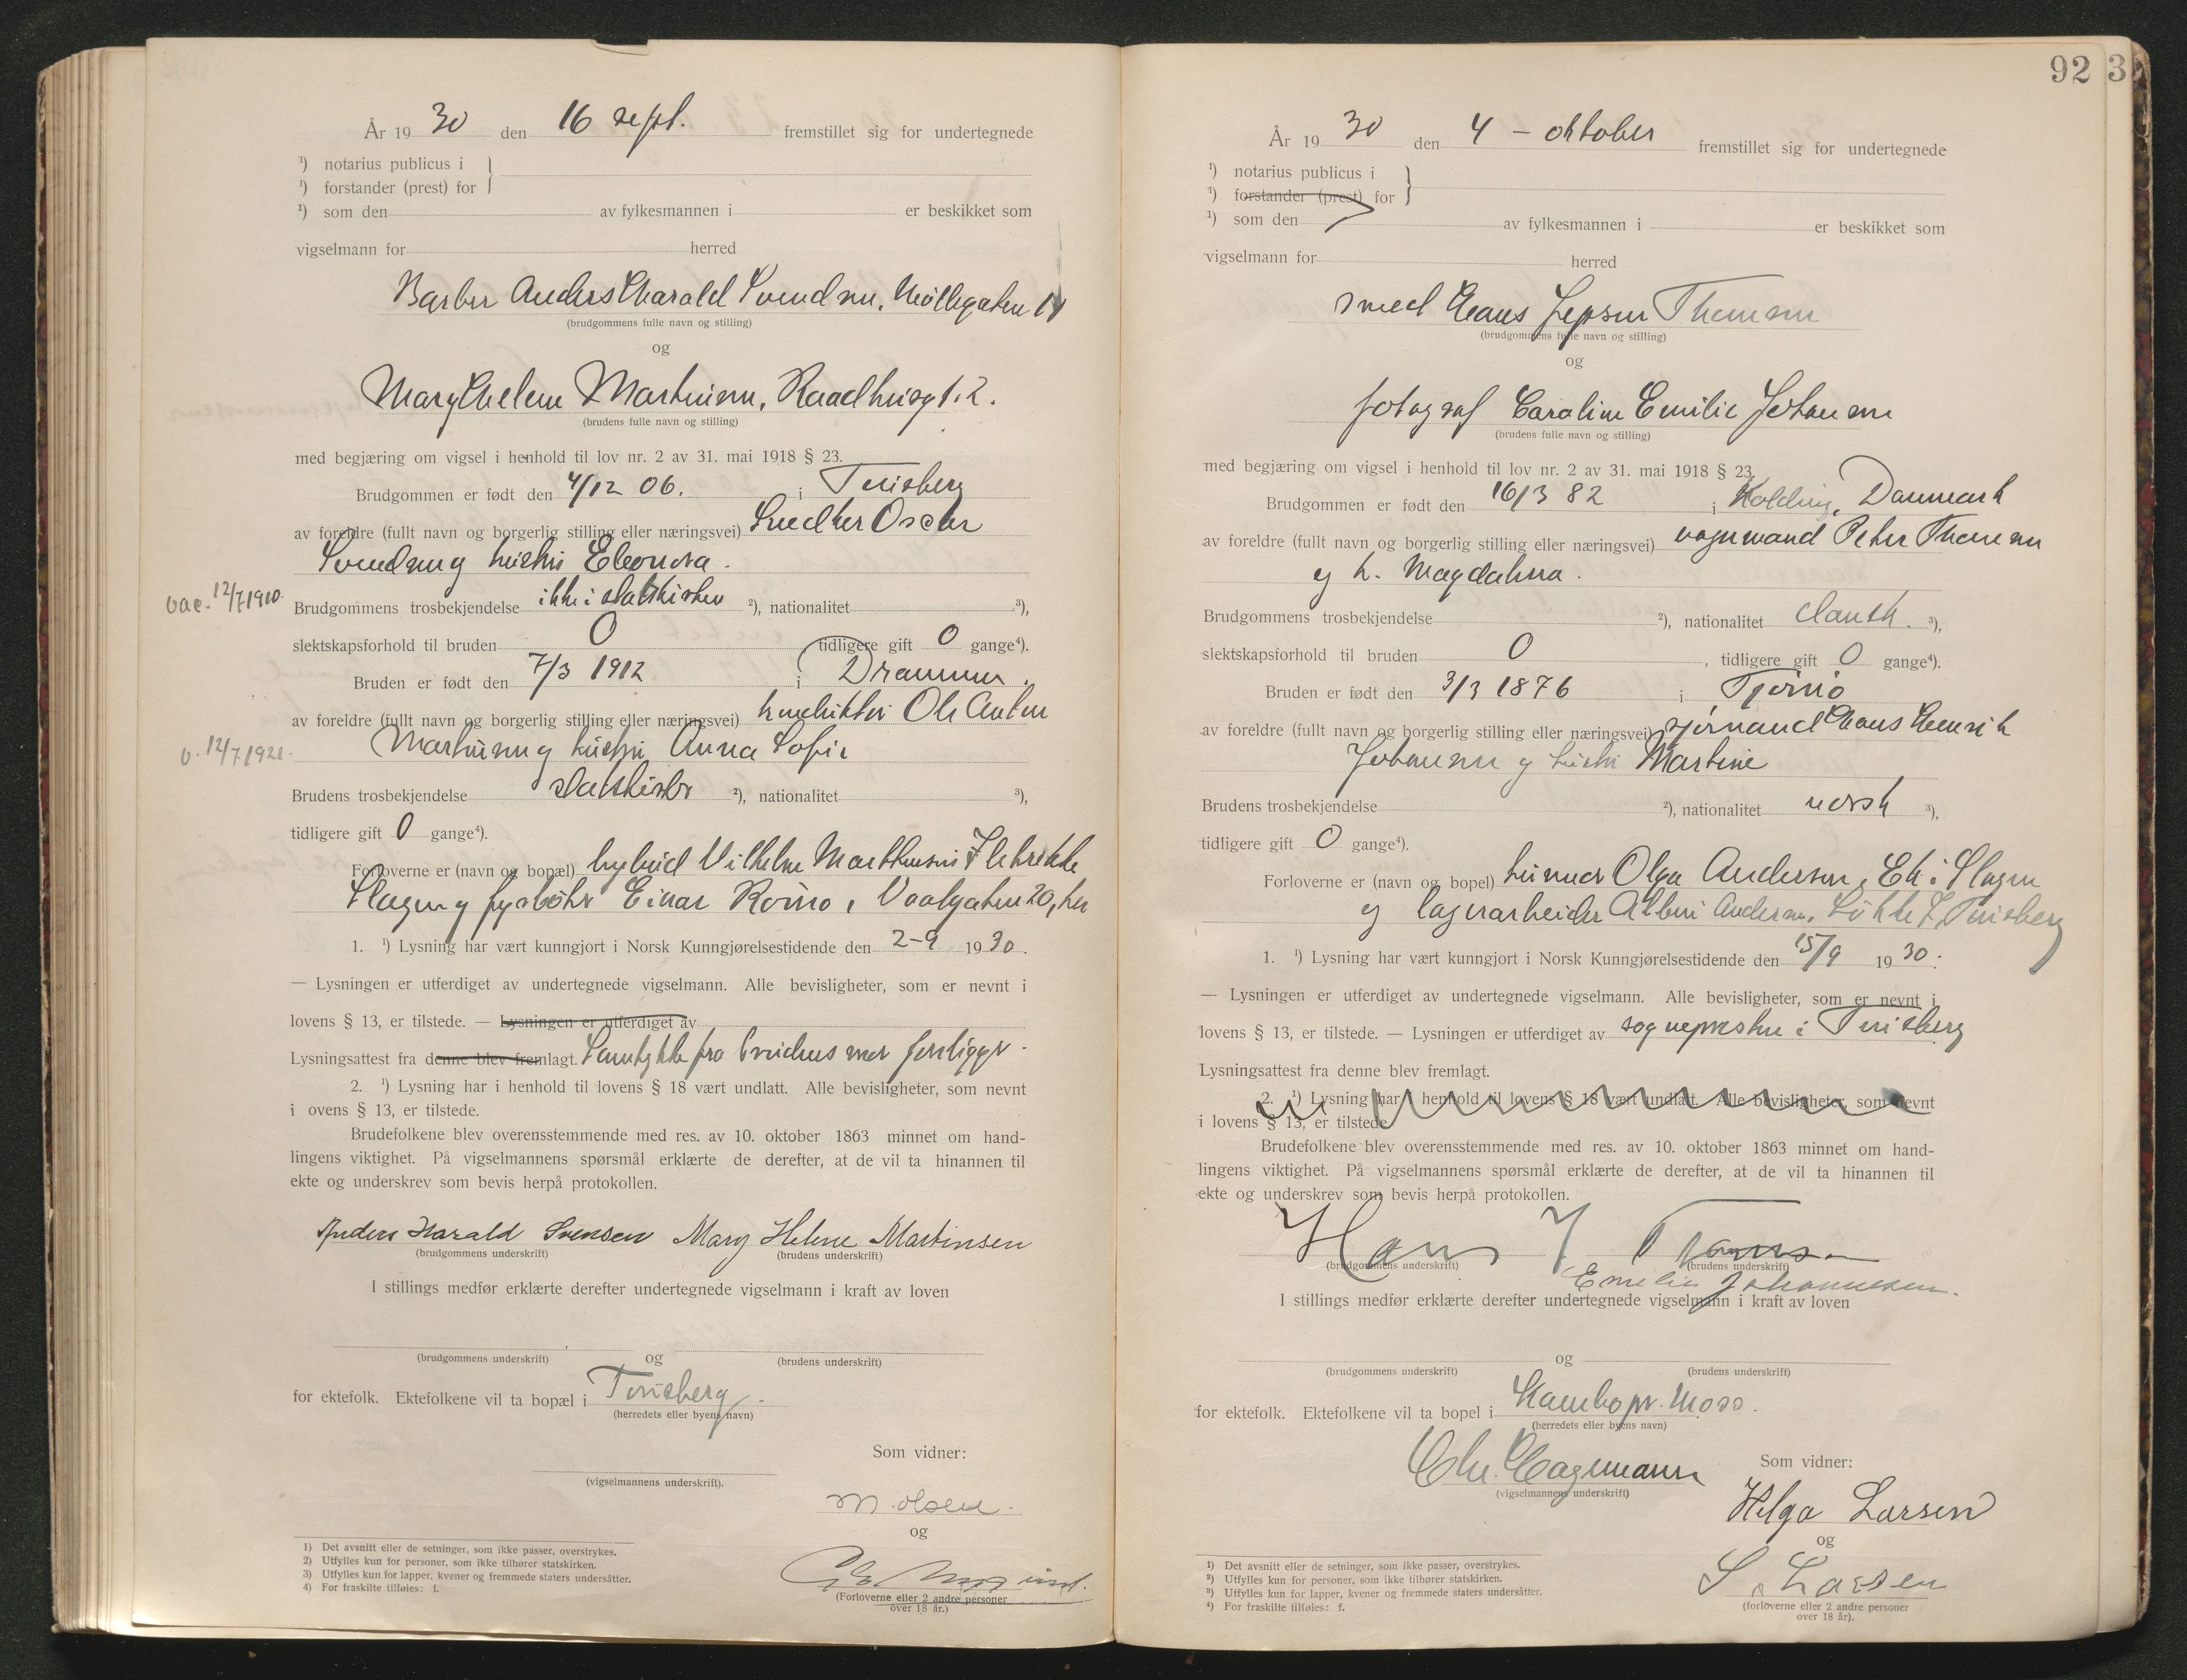 År 19 30 den 16 sept. fremstillet sig for undertegnede
¹) notarius publicus i
¹) forstander (prest) for
¹) som den av fylkesmannen i er beskikket som
vigselmann for herred
Barber Anders Harald Svendsen, Møllegaten 11
(brudgommens fulle navn og stilling)
og
Mary Helene Martinsen, Raadhusgt. 2.
(brudens fulle navn og stilling)
med begjæring om vigsel i henhold til lov nr. 2 av 31. mai 1918 § 23.
Brudgommen er født den 4/12 06. i Tønsberg
av foreldre (fullt navn og borgerlig stilling eller næringsvei) Snedker Oscar
Svendsen og hustru Eleonora.
vac. 12/7 1910.
Brudgommens trosbekjendelse ikke i statskirken ²), nationalitet ³),
slektskapsforhold til bruden 0 tidligere gift 0 gange⁴).
Bruden er født den 7/3 1912 i Drammen.
av foreldre (fullt navn og borgerlig stilling eller næringsvei) konduktør Ole Anton
Martinsen og hustru Anna Sofie
v. 12/7 1921.
Brudens trosbekjendelse statskirke ²), nationalitet ³),
tidligere gift 0 gange⁴).
Forloverne er (navn og bopæl) Vilhelm
Slagen og fyrbøter Einar
1. ¹) Lysning har vært kunngjort i Norsk Kunngjørelsestidende den 2-9 19 30.
— Lysningen er utferdiget av undertegnede vigselmann. Alle bevisligheter, som er nevnt i
lovens § 13, er tilstede. — Lysningen er utferdiget av
Lysningsattest fra denne blev fremlagt. Samtykke fra brudens mor foreligger.
2. ¹) Lysning har i henhold til lovens § 18 vært undlatt. Alle bevisligheter, som nevnt
i ovens § 13, er tilstede.
Brudefolkene blev overensstemmende med res. av 10. oktober 1863 minnet om hand-
lingens viktighet. På vigselmannens spørsmål erklærte de derefter, at de vil ta hinannen til
ekte og underskrev som bevis herpå protokollen.
Anders Harald Svensen Mary Helene Martinsen
(brudgommens underskrift) (brudens underskrift)
I stillings medfør erklærte derefter undertegnede vigselmann i kraft av loven
og
(brudgommens underskrift) (brudens underskrift)
for ektefolk. Ektefolkene vil ta bopæl i Tønsberg.
(herredets eller byens navn)
Som vidner:
(vigselmannens underskrift).
M. Olsen.
og
(Forloverne eller 2 andre personer
over 18 år.)
1) Det avsnitt eller de setninger, som ikke passer, overstrykes.
2) Utfylles kun for personer, som ikke tilhører statskirken.
3) Utfylles kun for lapper, kvener og fremmede staters undersåtter.
4) For fraskilte tilføies: f.
92 3
År 19 30 den 4 - oktober fremstillet sig for undertegnede
¹) notarius publicus i
¹) forstander (prest) for
¹) som den av fylkesmannen i er beskikket som
vigselmann for herred
smed Hans Jepsen Thomsen
(brudgommens fulle navn og stilling)
og
fotograf Caroline Emilie Johannsen
(brudens fulle navn og stilling)
med begjæring om vigsel i henhold til lov nr. 2 av 31. mai 1918 § 23.
Brudgommen er født den 16/3 82 i Kolding, Danmark
av foreldre (fullt navn og borgerlig stilling eller næringsvei) vognmand Peter Thomsen
og h. Magdalena.
Brudgommens trosbekjendelse ²), nationalitet dansk. ³),
slektskapsforhold til bruden 0, tidligere gift 0 gange⁴).
Bruden er født den 3/3 1876 i Tjømø
av foreldre (fullt navn og borgerlig stilling eller næringsvei) sjømand Hans Henrik
Johannsen og hustru Martine
Brudens trosbekjendelse ²), nationalitet norsk ³),
tidligere gift 0 gange⁴).
Forloverne er (navn og bopel) Olga Andersen, Ek i Slagen
og lagerarbeider Andersen, Tønsberg
1. ¹) Lysning har vært kunngjort i Norsk Kunngjørelsestidende den 15/9 19 30.
— Lysningen er utferdiget av undertegnede vigselmann. Alle bevisligheter, som er nevnt i
lovens § 13, er tilstede. — Lysningen er utferdiget av sognepresten i Tønsberg
Lysningsattest fra denne blev fremlagt.
2. ¹) Lysning har i henhold til lovens § 18 vært undlatt. Alle bevisligheter, som nevnt
i lovens § 13, er tilstede
Brudefolkene blev overensstemmende med res. av 10. oktober 1863 minnet om hand-
lingens viktighet. På vigselmannens spørsmål erklærte de derefter, at de vil ta hinannen til
ekte og underskrev som bevis herpå protokollen.
Hans J Tomsen
(brudgommens underskrift) (brudens underskrift)
Emelie Johannesen.
I stillings medfør erklærte derefter undertegnede vigselmann i kraft av loven
og
(brudgommens underskrift) (brudens underskrift)
for ektefolk. Ektefolkene vil ta bopel i Kambo pr. Moss.
(herredets eller byens navn)
Chr. Hagemann
Som vidner:
(vigselmannens underskrift)
Helga Larsen
og
S. Larsen
(forloverne eller 2 andre personer
over 18 år).
¹) Det avsnitt eller de setninger, som ikke passer, overstrykes.
²) Utfylles kun for personer, som ikke tilhører statskirken.
³) Utfylles kun for lapper, kvener og fremmede staters undersåtter.
⁴) For fraskilte tilføies: f.